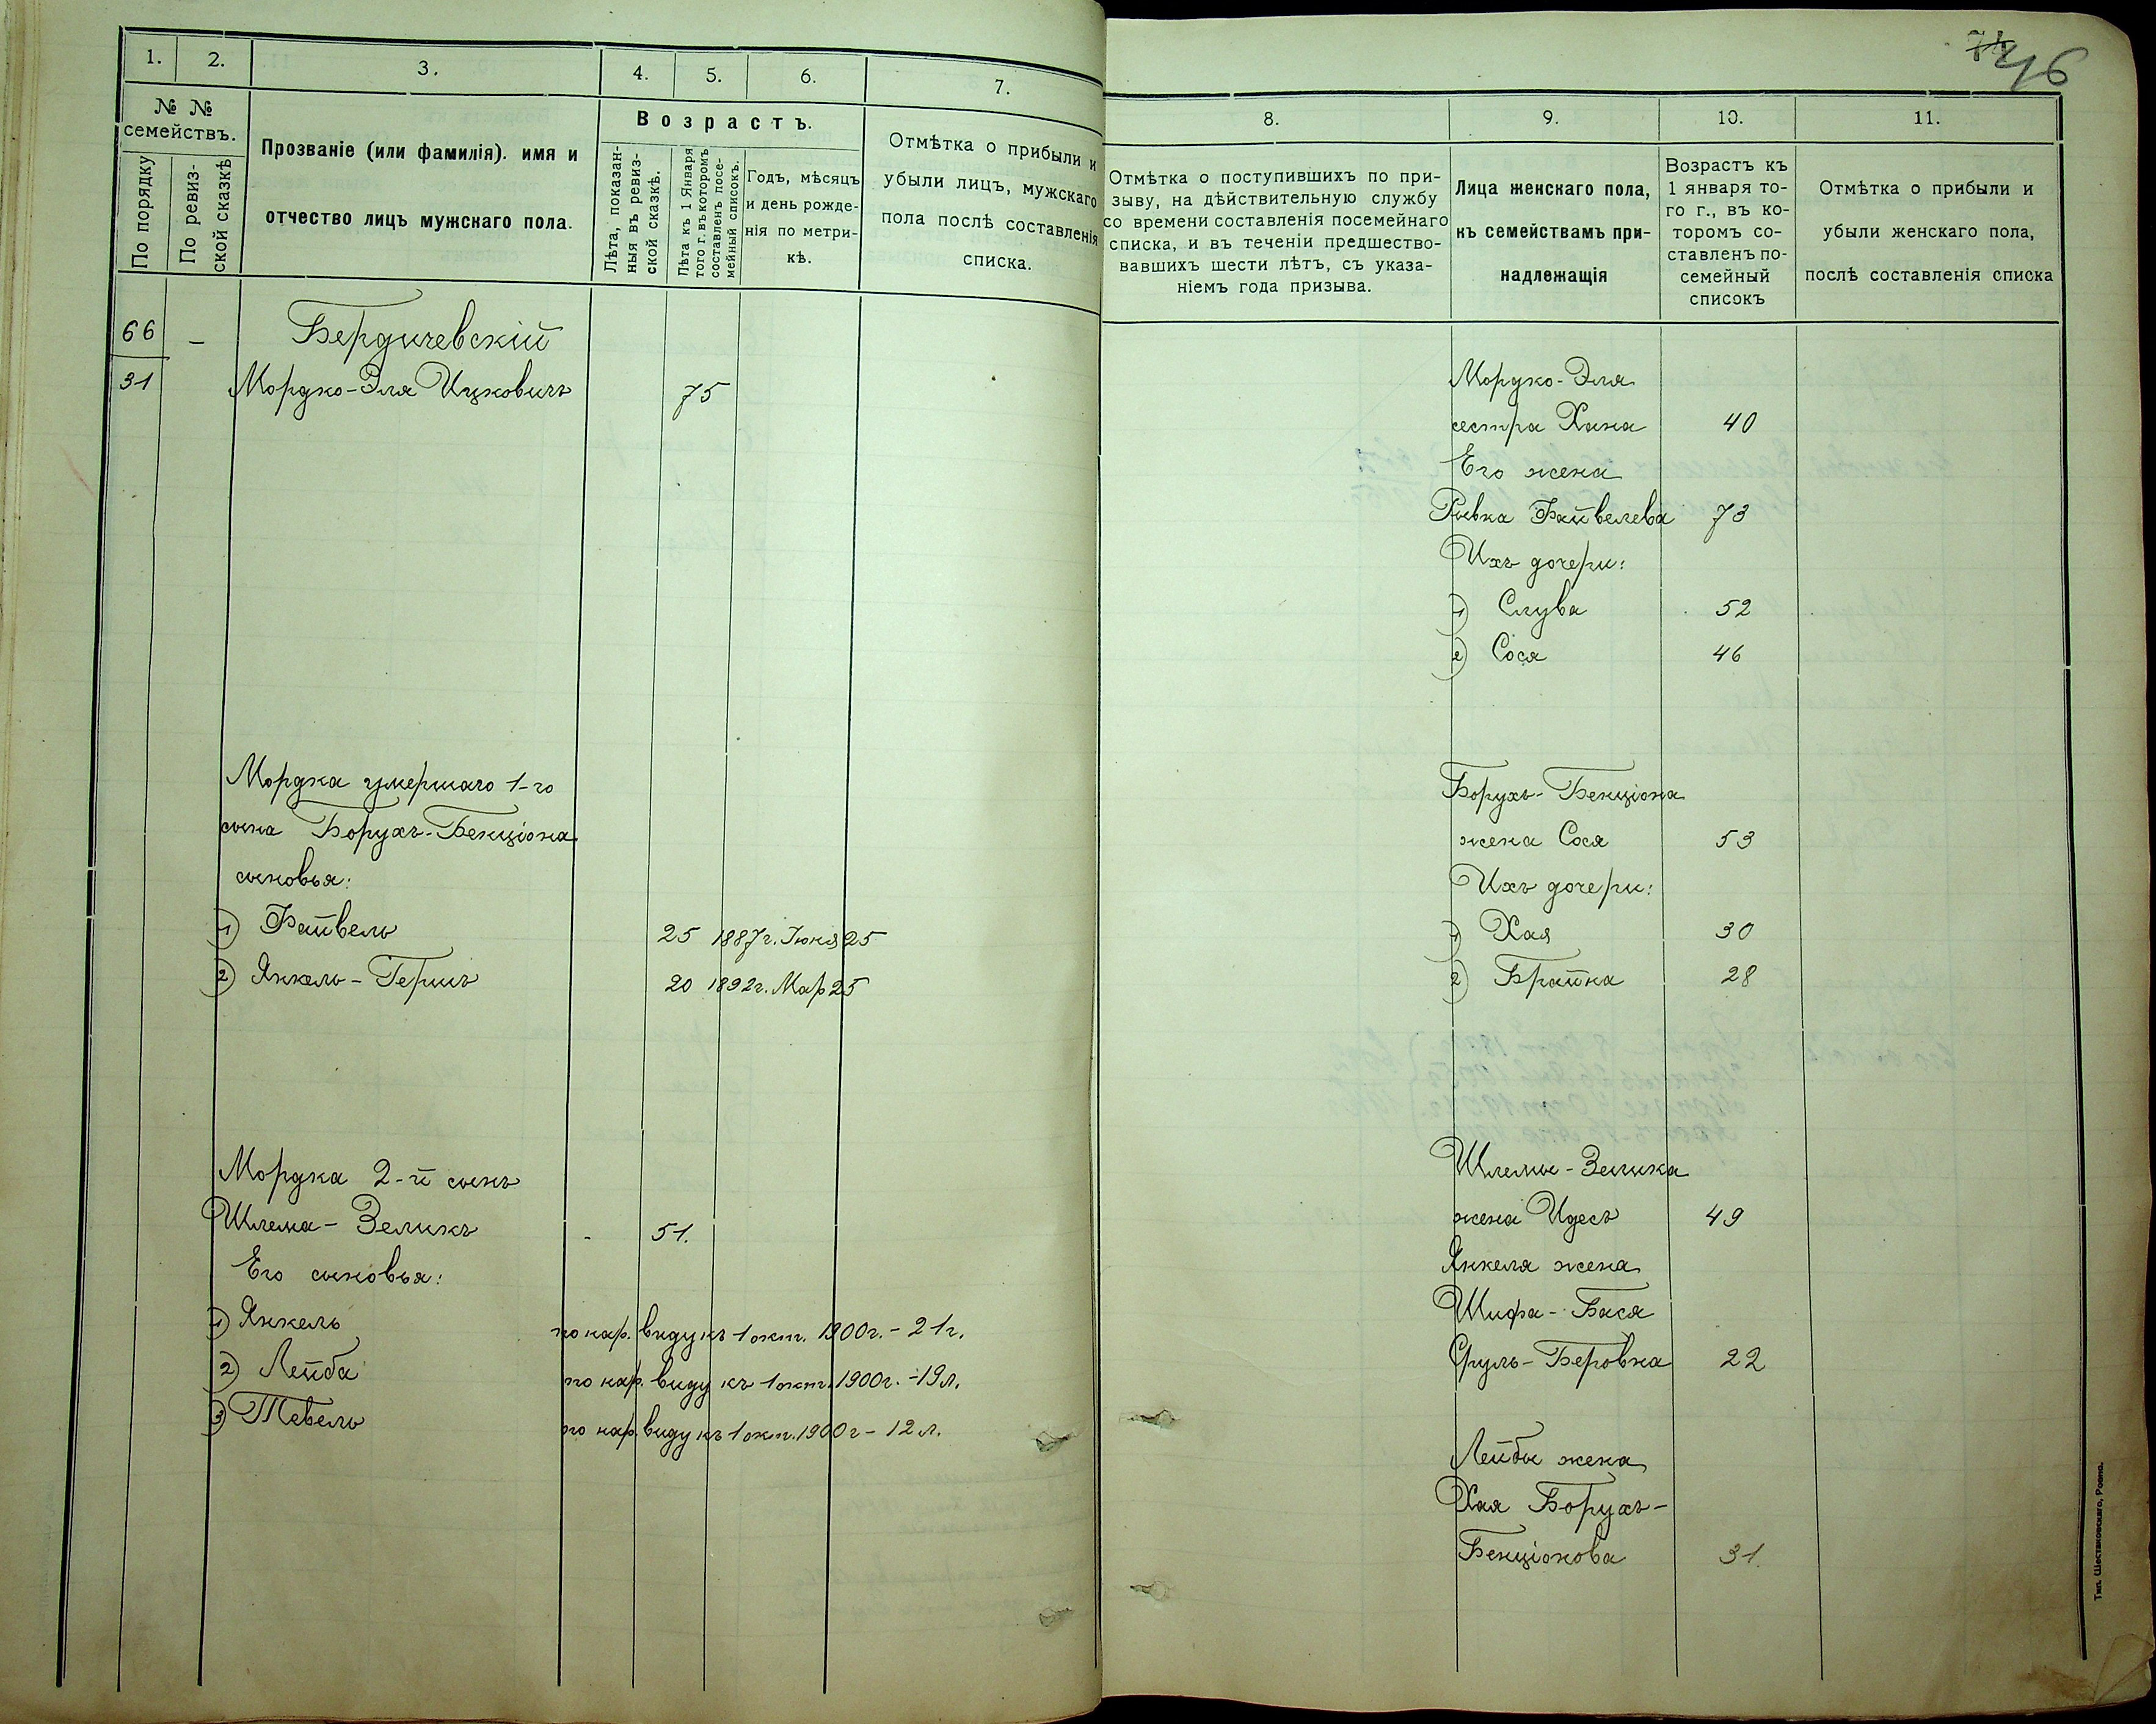 1.
2.
3.
4.
5.
6.
7.
№ №
семействъ.
По порядку
По ревиз-
ской сказкѣ
Прозваніе (или фамилія). имя и
отчество лицъ мужскаго пола.
Возрастъ.
Лѣта, показан-
ныя въ ревиз-
ской сказкѣ.
Лѣта къ 1 Января
того г. въ которомъ
составленъ посе-
мейный списокъ.
Годъ, мѣсяцъ
и день рожде-
нія по метри-
кѣ.
Отмѣтка о прибыли и
убыли лицъ, мужскаго
пола послѣ составленія
списка.
66 — Бердичевскій
31 Мордко-Эля Ицковичъ 75
Мордка умершаго 1-го
сына Борухъ-Бенціона
сыновья:
1) Файвель 25 1887г. Іюня 25
2) Янкель-Гершъ 20 1892г. Мар 25
Мордка 2-й сынъ
Шлема-Зеликъ - 51.
Его сыновья:
1) Янкель по нар. виду къ 1 окт. 1900г. - 21г.
2) Лейба по нар. виду къ 1 окт. 1900г. - 19л.
3) Тевель по нар. виду къ 1 окт. 1900г - 12 л.
46
8.
9.
10.
11.
Отмѣтка о поступившихъ по при-
зыву, на дѣйствительную службу
со времени составленія посемейнаго
списка, и въ теченіи предшество-
вавшихъ шести лѣтъ, съ указа-
ніемъ года призыва.
Лица женскаго пола,
къ семействамъ при-
надлежащія
Возрастъ къ
1 января то-
го г., въ ко-
торомъ со-
ставленъ по-
семейный
списокъ
Отмѣтка о прибыли и
убыли женскаго пола,
послѣ составленія списка
Мордко-Эля
сестра Хана 40
Его жена
Ривка Файвелева 73
Ихъ дочери:
1) Слува 52
2) Сося 46
Борухъ-Бенціона
жена Сося 53
Ихъ дочери:
1) Хая 30
2) Брайна 28
Шлемы-Зелика
жена Идесъ 49
Янкеля жена
Шифра-Бася
Сруль-Беровна 22
Лейбы жена
Хая Борухъ-
Бенціонова 31.
Тип. Шестаковскаго, Ровно.